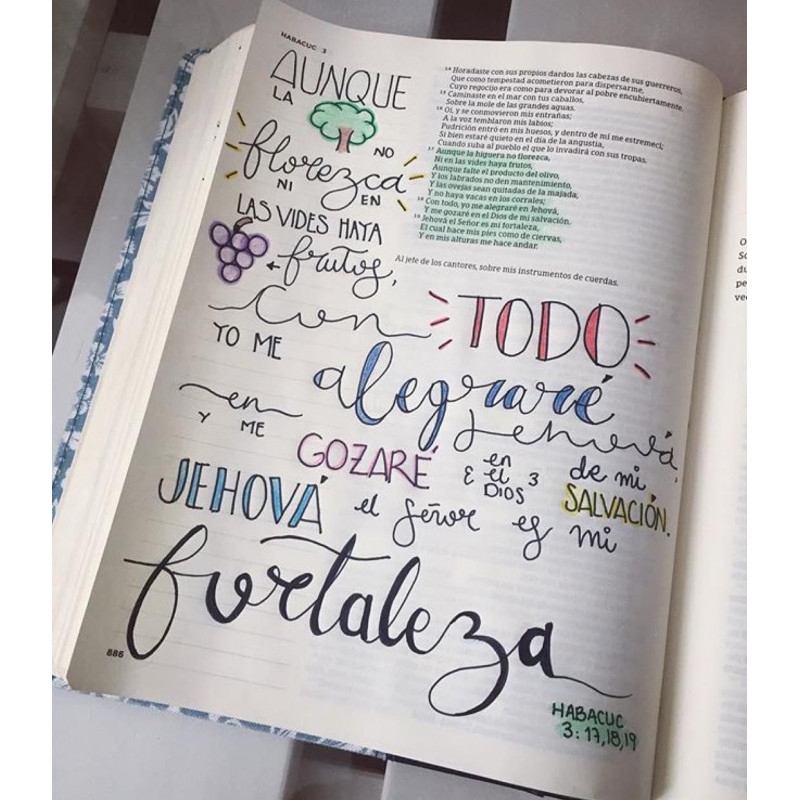 HABACUC 3
AUNQUE
LA
NO
florezca
NI EN
LAS VIDES HAYA
frutos,
Con TODO
YO ME
alegraré
en Jehová,
Y ME
GOZARÉ en el DIOS de mi
SALVACIÓN.
JEHOVÁ el Señor es mi
fortaleza
HABACUC
3:17,18,19
886
¹⁴ Horadaste con sus propios dardos las cabezas de sus guerreros,
Que como tempestad acometieron para dispersarme,
Cuyo regocijo era como para devorar al pobre encubiertamente.
¹⁵ Caminaste en el mar con tus caballos,
Sobre la mole de las grandes aguas.
¹⁶ Oí, y se conmovieron mis entrañas;
A la voz temblaron mis labios;
Pudrición entró en mis huesos, y dentro de mí me estremecí;
Si bien estaré quieto en el día de la angustia,
Cuando suba al pueblo el que lo invadirá con sus tropas.
¹⁷ Aunque la higuera no florezca,
Ni en las vides haya frutos,
Aunque falte el producto del olivo,
Y los labrados no den mantenimiento,
Y las ovejas sean quitadas de la majada,
Y no haya vacas en los corrales;
¹⁸ Con todo, yo me alegraré en Jehová,
Y me gozaré en el Dios de mi salvación.
¹⁹ Jehová el Señor es mi fortaleza,
El cual hace mis pies como de ciervas,
Y en mis alturas me hace andar.
Al jefe de los cantores, sobre mis instrumentos de cuerdas.